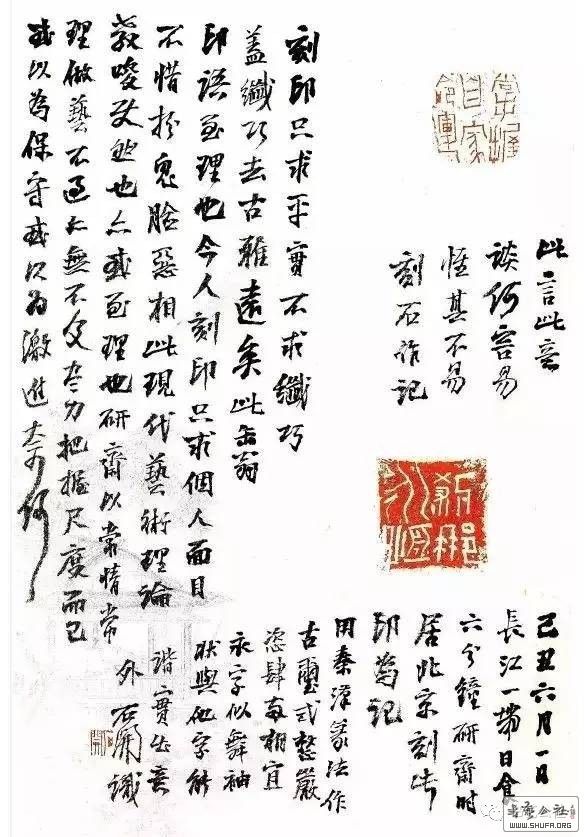 掌握
自家
命運
此言此意
談何容易
惟其不易
刻石作記
刹那
永恒
己丑六月一日
長江一帶日食
六分鐘研齋時
居北京刻此
印為記
用秦漢篆法作
古璽式整嚴
恣肆兩相宜
永字似舞袖
狀與他字能
諧實出意
外 石開識
刻印只求平實不求纖巧
蓋纖巧去古雅遠矣此缶翁
印語至理也今人刻印只求個人面目
不惜扮鬼臉惡相此現代藝術理論
教唆使然也亦或至理也研齋以常情常
理做藝不過亦無不及盡力把握尺度而已
或以為保守或以為激進奈何
WWW.SHUFA.ORG